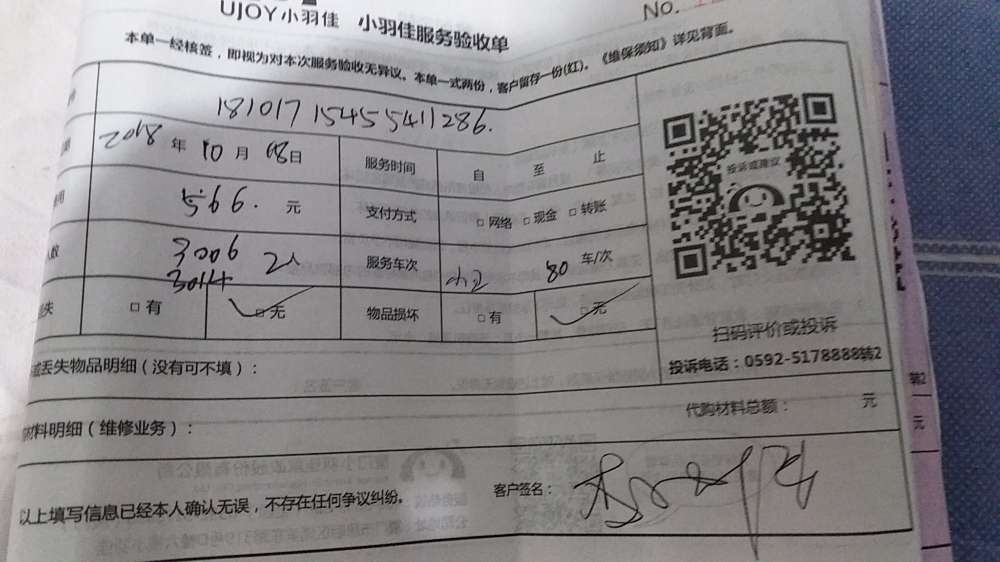 UJOY小羽佳 小羽佳服务验收单
No.
本单一经核签，即视为对本次服务验收无异议。本单一式两份，客户留存一份(红)。《维保须知》详见背面。
18101715455411286.
2018年10月08日 服务时间 自 至 止
566. 元 支付方式 □网络 □现金 □转账
数 3006 2人 服务车次 80 车/次
3014
失 □有 □无 物品损坏 □有 □无
投诉或建议
扫码评价或投诉
投诉电话：0592-5178888转2
或丢失物品明细（没有可不填）：
材料明细（维修业务）： 代购材料总额： 元
以上填写信息已经本人确认无误，不存在任何争议纠纷。 客户签名：
转2
元